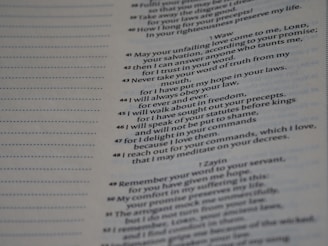 Fulfill your
so that you may be
39 Take away the disgrace I dread,
for your laws are good.
40 How I long for your precepts!
In your righteousness preserve my life.
ו Waw
41 May your unfailing love come to me, LORD,
your salvation, according to your promise;
42 then I can answer anyone who taunts me,
for I trust in your word.
43 Never take your word of truth from my
mouth,
for I have put my hope in your laws.
44 I will always obey your law,
for ever and ever.
45 I will walk about in freedom,
for I have sought out your precepts.
46 I will speak of your statutes before kings
and will not be put to shame,
47 for I delight in your commands
because I love them.
48 I reach out for your commands, which I love,
that I may meditate on your decrees.
ז Zayin
49 Remember your word to your servant,
for you have given me hope.
50 My comfort in my suffering is this:
Your promise preserves my life.
51 The arrogant mock me unmercifully,
but I do not turn from your law.
52 I remember, LORD, your ancient laws,
and I find comfort in them.
because of the wicked,